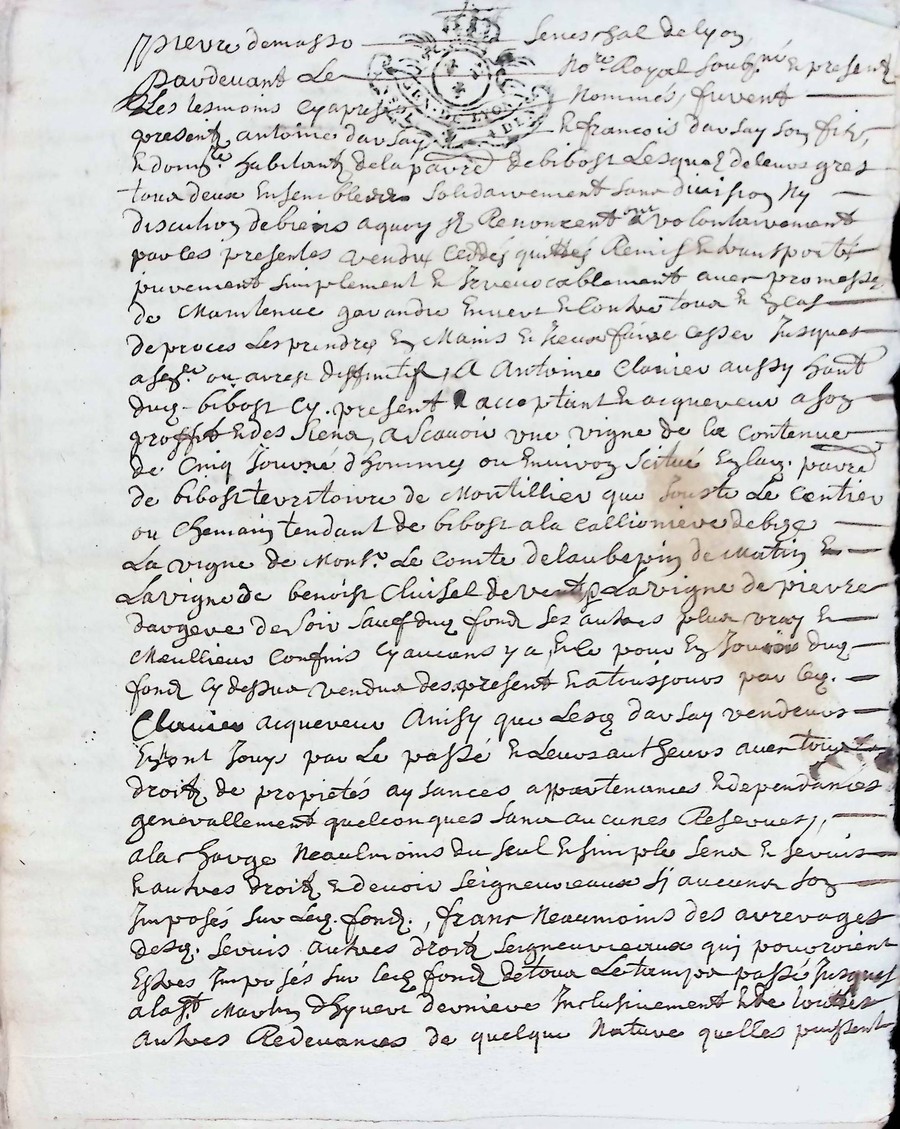 pierre demasso Seneschal de Lyon
Pardevant Le No.re Royal soubz.né & present
Les tesmoins cyapres Nommés, furent
presentz antoine darsay & francois darsay son filz,
& habitantz de la parr.e de bibost Lesquelz de leurs grés
tous deux Ensemblem.t solidairement sans division ny
discution de biens a quoy ilz Renoncent volontairement
par les presentes vendu Ceddés quittés Remis & transportés
purement simplement & Irrevocablement avec promesse
de Maintenue garandie Envers & Contre tous & En Cas
de proces Les prendre En Mains & Iceux faire cesser Jusques
a ou arrest diffinitif, A Antoine Clavier aussy habit.
dud. bibost Cy present & acceptant & acquereur a son
proffit & des siens, a scavoir une vigne de la Contenue
de Cinq Journé d'hommes ou Environ scitué En lad. parr.e
de bibost territoire de Montillier que Jouste Le Centier
ou Chemain tendant de bibost a la Callioniere de bize
La vigne de Mons.r Le Comte de laubepin de Matin &
La vigne de benoist Cluisel de vent & La vigne de pierre
dargere de soir sauf dud. fond ses autres plus vray &
Meullieur Confins Cy aucuns y a, & ce pour En Jouir dud.
fond Cy dessus vendus des present & a tousjours par led.
Clavier acquereur Ainsy que Lesd. darsay vendeurs
En ont Jouy par Le passé & Leurs autheurs avec tous
droitz de propietés aysances appartenances & dependances
generallement quelconques sans aucunes Reserves,
a la charge Neaulmoins du seul & simple sens & servis
& autres droitz & devoir seigneureaux sj aucuns son
Imposés sur led. fond, franc Neaumoins des arrerages
desd. servis autres droitz seigneurieaux quj pourroient
Estres Imposés sur led. fond de tous Le temps passé Jusques
a la s.t Martin d'hyvert derniere Inclusivement & de toutes
Autres Redevances de quelque Nature quelles puissent